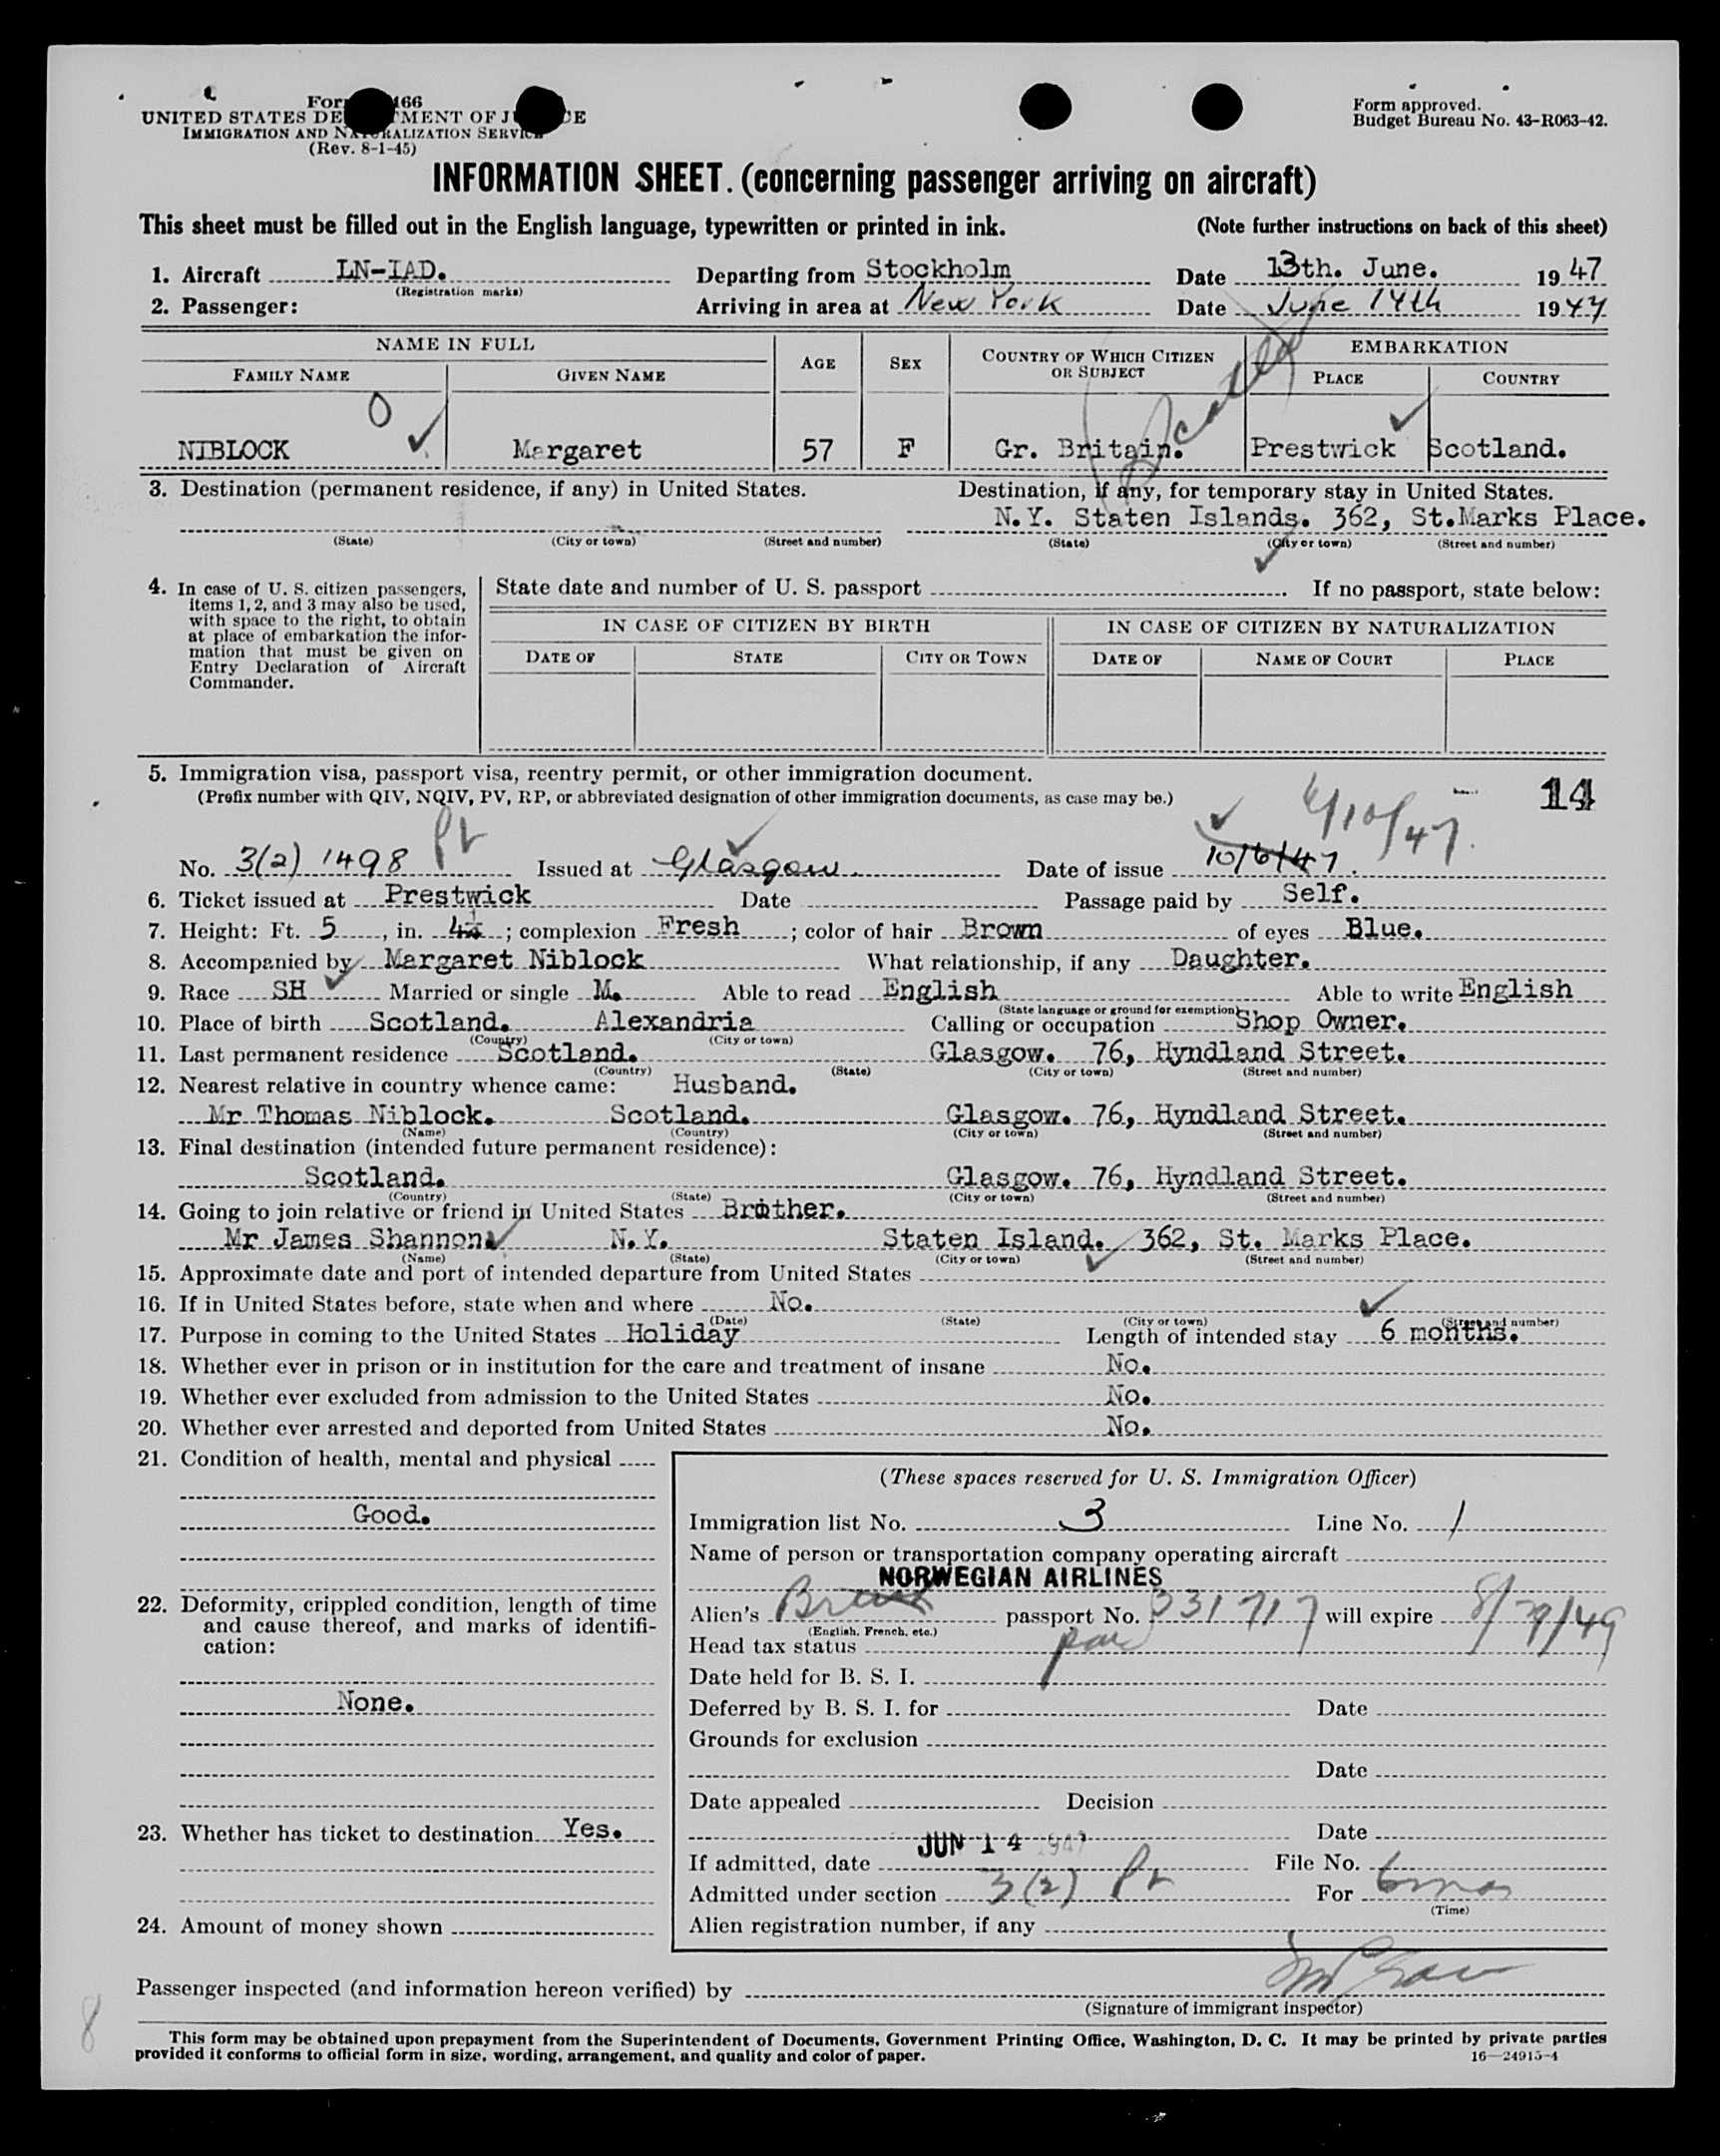 Form 466
UNITED STATES DEPARTMENT OF JUSTICE
IMMIGRATION AND NATURALIZATION SERVICE
(Rev. 8-1-45)
Form approved.
Budget Bureau No. 43-R063-42.
INFORMATION SHEET. (concerning passenger arriving on aircraft)
This sheet must be filled out in the English language, typewritten or printed in ink. (Note further instructions on back of this sheet)
1. Aircraft LN-IAD. Departing from Stockholm Date 13th. June. 1947
(Registration marks)
2. Passenger: Arriving in area at New York Date June 14th 1947
NAME IN FULL AGE SEX COUNTRY OF WHICH CITIZEN OR SUBJECT EMBARKATION
FAMILY NAME GIVEN NAME PLACE COUNTRY
NIBLOCK Margaret 57 F Gr. Britain. Prestwick Scotland.
3. Destination (permanent residence, if any) in United States. Destination, if any, for temporary stay in United States.
N.Y. Staten Islands. 362, St.Marks Place.
(State) (City or town) (Street and number) (State) (City or town) (Street and number)
4. In case of U. S. citizen passengers, items 1, 2, and 3 may also be used, with space to the right, to obtain at place of embarkation the information that must be given on Entry Declaration of Aircraft Commander.
State date and number of U. S. passport If no passport, state below:
IN CASE OF CITIZEN BY BIRTH IN CASE OF CITIZEN BY NATURALIZATION
DATE OF STATE CITY OR TOWN DATE OF NAME OF COURT PLACE
5. Immigration visa, passport visa, reentry permit, or other immigration document. 14
(Prefix number with QIV, NQIV, PV, RP, or abbreviated designation of other immigration documents, as case may be.)
6/10/47.
No. 3(2) 1498 Issued at Glasgow. Date of issue 10/6/47.
6. Ticket issued at Prestwick Date Passage paid by Self.
7. Height: Ft. 5, in. 4½; complexion Fresh; color of hair Brown of eyes Blue.
8. Accompanied by Margaret Niblock What relationship, if any Daughter.
9. Race SH Married or single M. Able to read English Able to write English
(State language or ground for exemption)
10. Place of birth Scotland. Alexandria Calling or occupation Shop Owner.
(Country) (City or town)
11. Last permanent residence Scotland. Glasgow. 76, Hyndland Street.
(Country) (State) (City or town) (Street and number)
12. Nearest relative in country whence came: Husband.
Mr Thomas Niblock. Scotland. Glasgow. 76, Hyndland Street.
(Name) (Country) (City or town) (Street and number)
13. Final destination (intended future permanent residence):
Scotland. Glasgow. 76, Hyndland Street.
(Country) (State) (City or town) (Street and number)
14. Going to join relative or friend in United States Brother.
Mr James Shannon. N.Y. Staten Island. 362, St. Marks Place.
(Name) (State) (City or town) (Street and number)
15. Approximate date and port of intended departure from United States
16. If in United States before, state when and where No.
(Date) (State) (City or town) (Street and number)
17. Purpose in coming to the United States Holiday Length of intended stay 6 months.
18. Whether ever in prison or in institution for the care and treatment of insane No.
19. Whether ever excluded from admission to the United States No.
20. Whether ever arrested and deported from United States No.
21. Condition of health, mental and physical
Good.
22. Deformity, crippled condition, length of time and cause thereof, and marks of identification:
None.
23. Whether has ticket to destination Yes.
24. Amount of money shown
(These spaces reserved for U. S. Immigration Officer)
Immigration list No. 3 Line No. 1
Name of person or transportation company operating aircraft
NORWEGIAN AIRLINES
Alien's passport No. 331717 will expire 8/29/49
(English, French, etc.)
Head tax status
Date held for B. S. I.
Deferred by B. S. I. for Date
Grounds for exclusion
Date
Date appealed Decision
Date
If admitted, date JUN 14 1947 File No.
Admitted under section 3(2) For 6 mos
(Time)
Alien registration number, if any
Passenger inspected (and information hereon verified) by
(Signature of immigrant inspector)
8
This form may be obtained upon prepayment from the Superintendent of Documents, Government Printing Office, Washington, D. C. It may be printed by private parties
provided it conforms to official form in size, wording, arrangement, and quality and color of paper. 16—24915-4